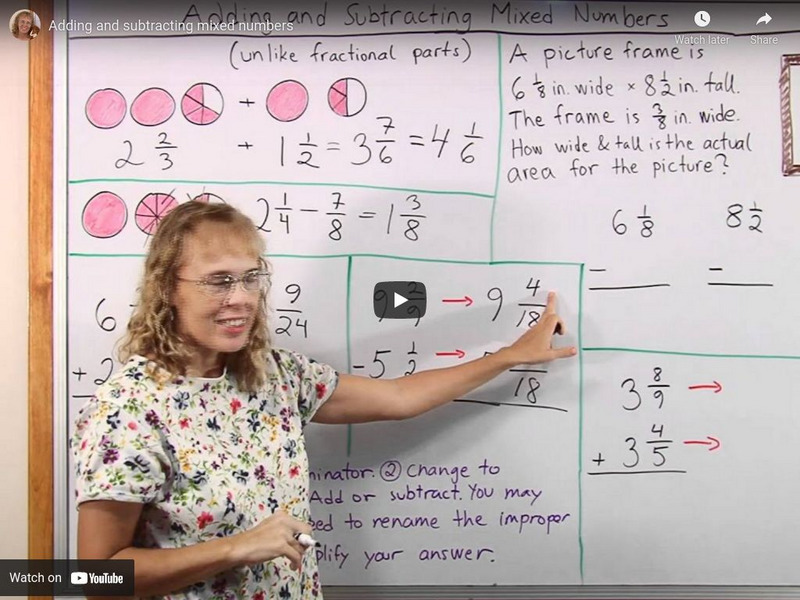 Adding and Subtracting Mixed Numbers
Adding and subtracting mixed numbers
Watch later
Share
(unlike fractional parts)
+
2 2/3 + 1 1/2 = 3 7/6 = 4 1/6
2 1/4 − 7/8 = 1 3/8
A picture frame is
6 1/8 in. wide × 8 1/2 in. tall.
The frame is 3/8 in. wide.
How wide & tall is the actual
area for the picture?
6 1/8
−
8 1/2
−
6
9/24
+ 2
9 2/9 → 9 4/18
− 5 1/2 → 18
3 8/9 →
+ 3 4/5 →
② Change to
Add or subtract. You may
to rename the improper
your answer.
Watch on YouTube